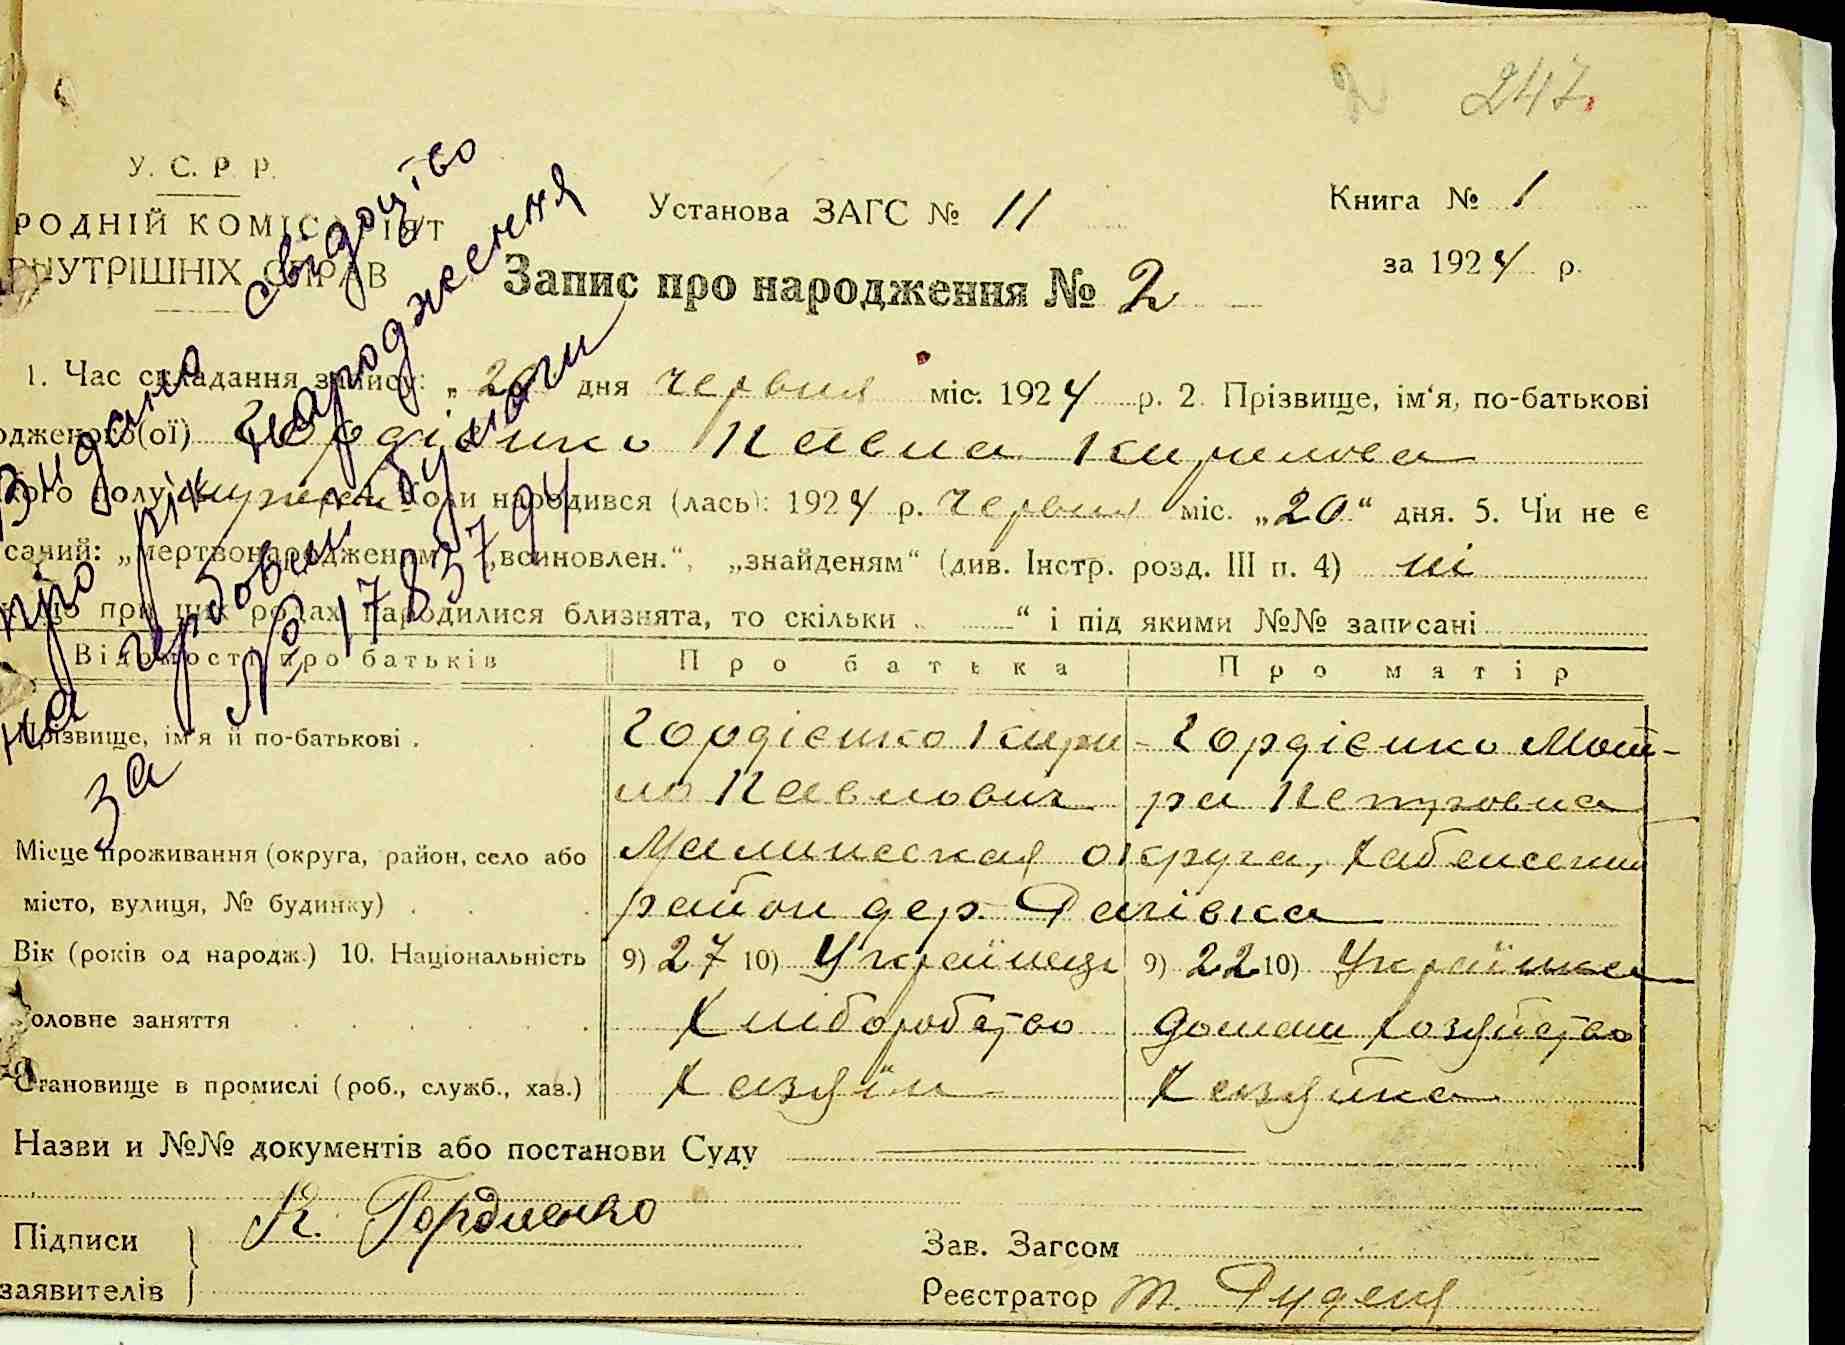 247.
У. С. Р. Р.
РОДНІЙ КОМІС ІЯТ
ВНУТРІШНІХ СПРАВ
Установа ЗАГС № 11
Книга № 1
за 1924 р.
Запис про народження № 2
1. Час складання запису: „20 дня червня міс. 1924 р. 2. Прізвище, ім'я, по-батькові
одженого(ої) Гордієнко Павла Кирилова
ого полу мужеск. Коли народився (лась): 1924 р. червня міс. „20“ дня. 5. Чи не є
саний: „мертвонародженим“ „всиновлен.“, „знайденям“ (див. Інстр. розд. III п. 4) ні
що при цих родах народилися близнята, то скільки “ і під якими №№ записані
Відомості про батьків Про батька Про матір
Прізвище, ім'я й по-батькові . Гордієнко Кири- Гордієнко Мот-
ло Павлович ря Петровна
Місце проживання (округа, район, село або Малинеская округа, Хабенский
місто, вулиця, № будинку) . . . район дер. Рачівка
Вік (років од народж.) 10. Національність 9) 27 10) Українець 9) 22 10) Українка
Головне заняття Хліборобство домаш хозяйство
Становище в промислі (роб., служб., хаз.) Хазяїн Хазяйка
Назви и №№ документів або постанови Суду
Підписи К. Гордиенко
заявителів
Зав. Загсом
Реєстратор Т. Руденя
Видано свідоцтво
про народження
на гербовім бумаги
за № 1783794